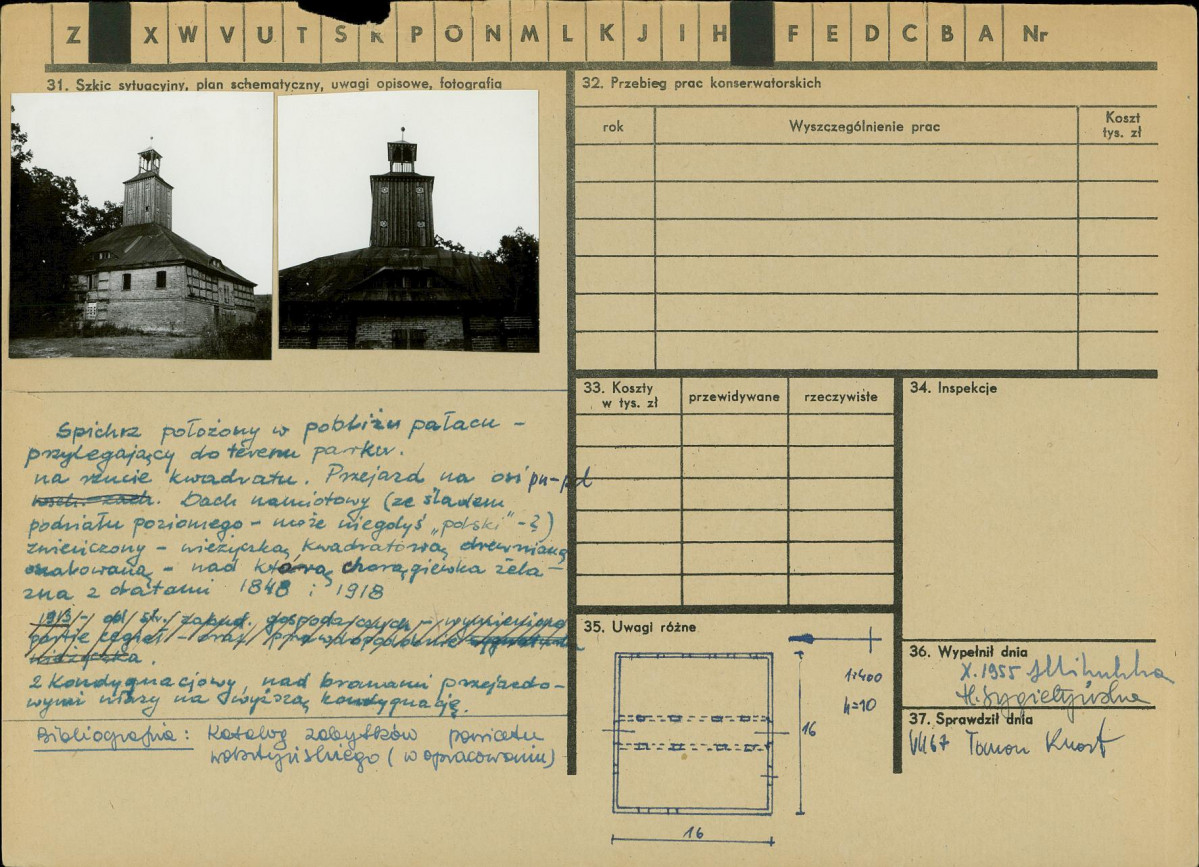 Z X W V U T S R P O N M L K J I H F E D C B A Nr
31. Szkic sytuacyjny, plan schematyczny, uwagi opisowe, fotografia
Spichrz położony w pobliżu pałacu -
przylegający do terenu parku.
na rzucie kwadratu. Przejazd na osi pn-pd
wsch. zach. Dach namiotowy (ze śladem
podziału poziomego - może niegdyś "polski" - ?)
zwieńczony - wieżyczką kwadratową drewnianą
szalowaną - nad którą chorągiewka żela-
zna z datami 1848 i 1918
1913/- od str. zabud. gospodarczych - wymieniono
partie cegieł - oraz prawdopodobnie
wieżyczka.
2 kondygnacjowy nad bramami przejazdo-
wymi wiązy na wyższą kondygnację.
Bibliografia: Katalog zabytków powiatu
wolsztyńskiego (w opracowaniu)
32. Przebieg prac konserwatorskich
rok Wyszczególnienie prac Koszt
tys. zł
33. Koszty
w tys. zł przewidywane rzeczywiste
34. Inspekcje
35. Uwagi różne
1:400
h=10
16
16
36. Wypełnił dnia
X.1955
37. Sprawdził dnia
VII 67